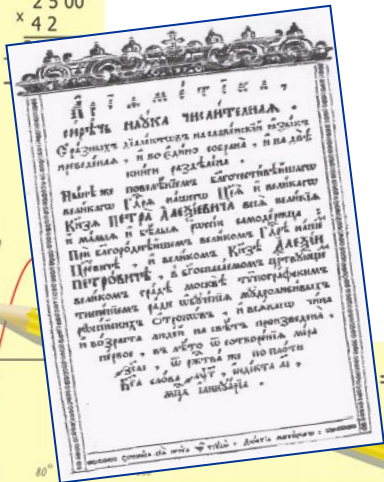 2 5 00
x 4 2
Арїѳметїка,
сирѣчь наука числителная.
Съ разныхъ дїалектовъ на славенскїй ѧзыкъ
преведенаѧ, и во едино собрана, и на двѣ
книги раздѣлена.
Нынѣ же повелѣнїемъ благочестивѣйшагѡ
великагѡ Гд҃рѧ нашегѡ Цр҃ѧ и великагѡ
Кн҃зѧ ПЕТРА АЛЕѮЇЕВИЧА всеѧ великїѧ
и малыѧ и бѣлыѧ рѡссїи самодержца
При благороднѣйшемъ великомъ Гд҃рѣ нашемъ
Цр҃евичѣ, и великомъ Кн҃зѣ АЛЕѮЇИ
ПЕТРОВИЧѢ, в бг҃оспасаемомъ црствующемъ
великомъ градѣ москвѣ тѵпографскимъ
тисненїемъ ради ѡбученїѧ мудролюбивыхъ
рѡссїйскихъ ѻтрокѡвъ, и всѧкагѡ чина
и возраста людей на свѣтъ произведена,
первое, въ лѣто ѿ сотворенїѧ мїра
҂зс҃аі, ѿ ржⷭ҇тва же по плоти
Бг҃а слова ҂аѱ҃г, їндїкта аі,
мц҃а їаннуарїа.
80°